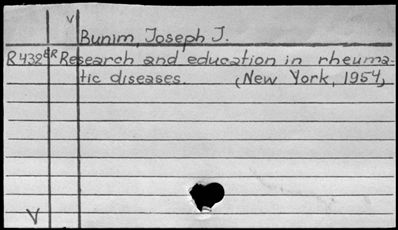 v
Bunim, Joseph J.
R432 ER Research and education in rheuma-
tic diseases. (New York, 1954)
V